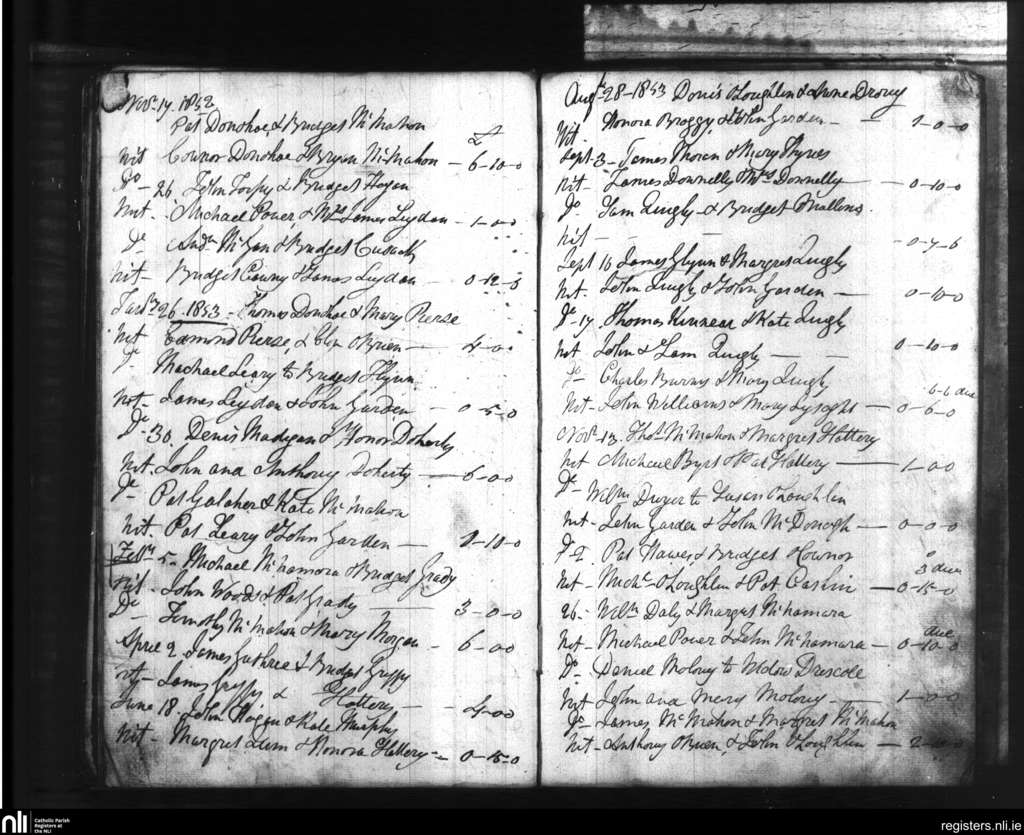 Novr. 17. 1852
Pat Donohoe & Bridget McMahon
£
Wit Connor Donohoe & Bryan McMahon - 6-10-0
Do - 26 John Torpy & Bridget Hogan
Wit. Michael Power, & Mrs James Leydon - 1-0-0
Do Andw & Bridget Cusack
Wit - Bridget & James Leydon - 0-12-
26. 1853 - Thomas Donohoe & Mary Perse
Wit Edmond Perse, & Ellen OBrien - 4-0-0
Do Michael Leary to Bridget Flynn
Wit - James Leydon & John Garden - 0-5-0
Do - 30. Denis Madigan & Honor Doherty
Wit. John and Anthony Doherty - 6-0-0
Do Pat Galaher & Kate McMahon
Wit. Pat Leary & John Garden - -10-0
Feby 5. Michael McNamora & Bridget Grady
Wit - John Woods & Pat Grady - 3-0-0
Do Timothy McMahon & Mary Morgan - 6-0-0
Aprel 2. James Guthree & Bridget Griffy
Wit - James Griffy & Hattery - 4-0-0
June 18. John Hogan & Kate Murphy
Wit - Margret & Honora Hattery - 0-15-0
Augt 28-1853 Denis OLoughlin & Anne Drouy
Wit. Honora & John Garden - 1-0-0
Sept - 3 - James Moran & Mary
Wit - James Donnelly & Mrs Donnelly - 0-10-0
Do Quigly & Bridget
Wit - - - 0-7-6
Sept 16 James Glynn & Margret Quigly
Wit. John Quigly & John Garden - 0-10-0
Do - 17. Thomas Kinnear & Kate Quigly
Wit John & Quigly - 0-10-0
Do Charles Burns & Mary Quigly
6-6 due
Wit - John Williams & Mary Lysaght - 0-6-0
Novr - 13. Thos McMahon & Margret Hattery
Wit Micheal & Pat Hattery - 1-0-0
Do - Wilm Dwyer to Susan OLoughlin
Wit - John Garden & John McDonogh - 0-0-0
Pat Hawes & Bridget
due
Wit - Michl OLoughlin & Pat Cashin - 0-15-0
26 - Wilm Daly & Margret McNamara
due
Wit - Michael Power & John McNamara - 0-10-0
Do - Daniel Molony to Widow Driscole
Wit John and Mary Molony - 1-0-0
Do - James McMahon & Margret McMahon
Wit - Anthony OBrien & John OLoughlin - 2-10-0
nli Catholic Parish
Registers at
the NLI
registers.nli.ie